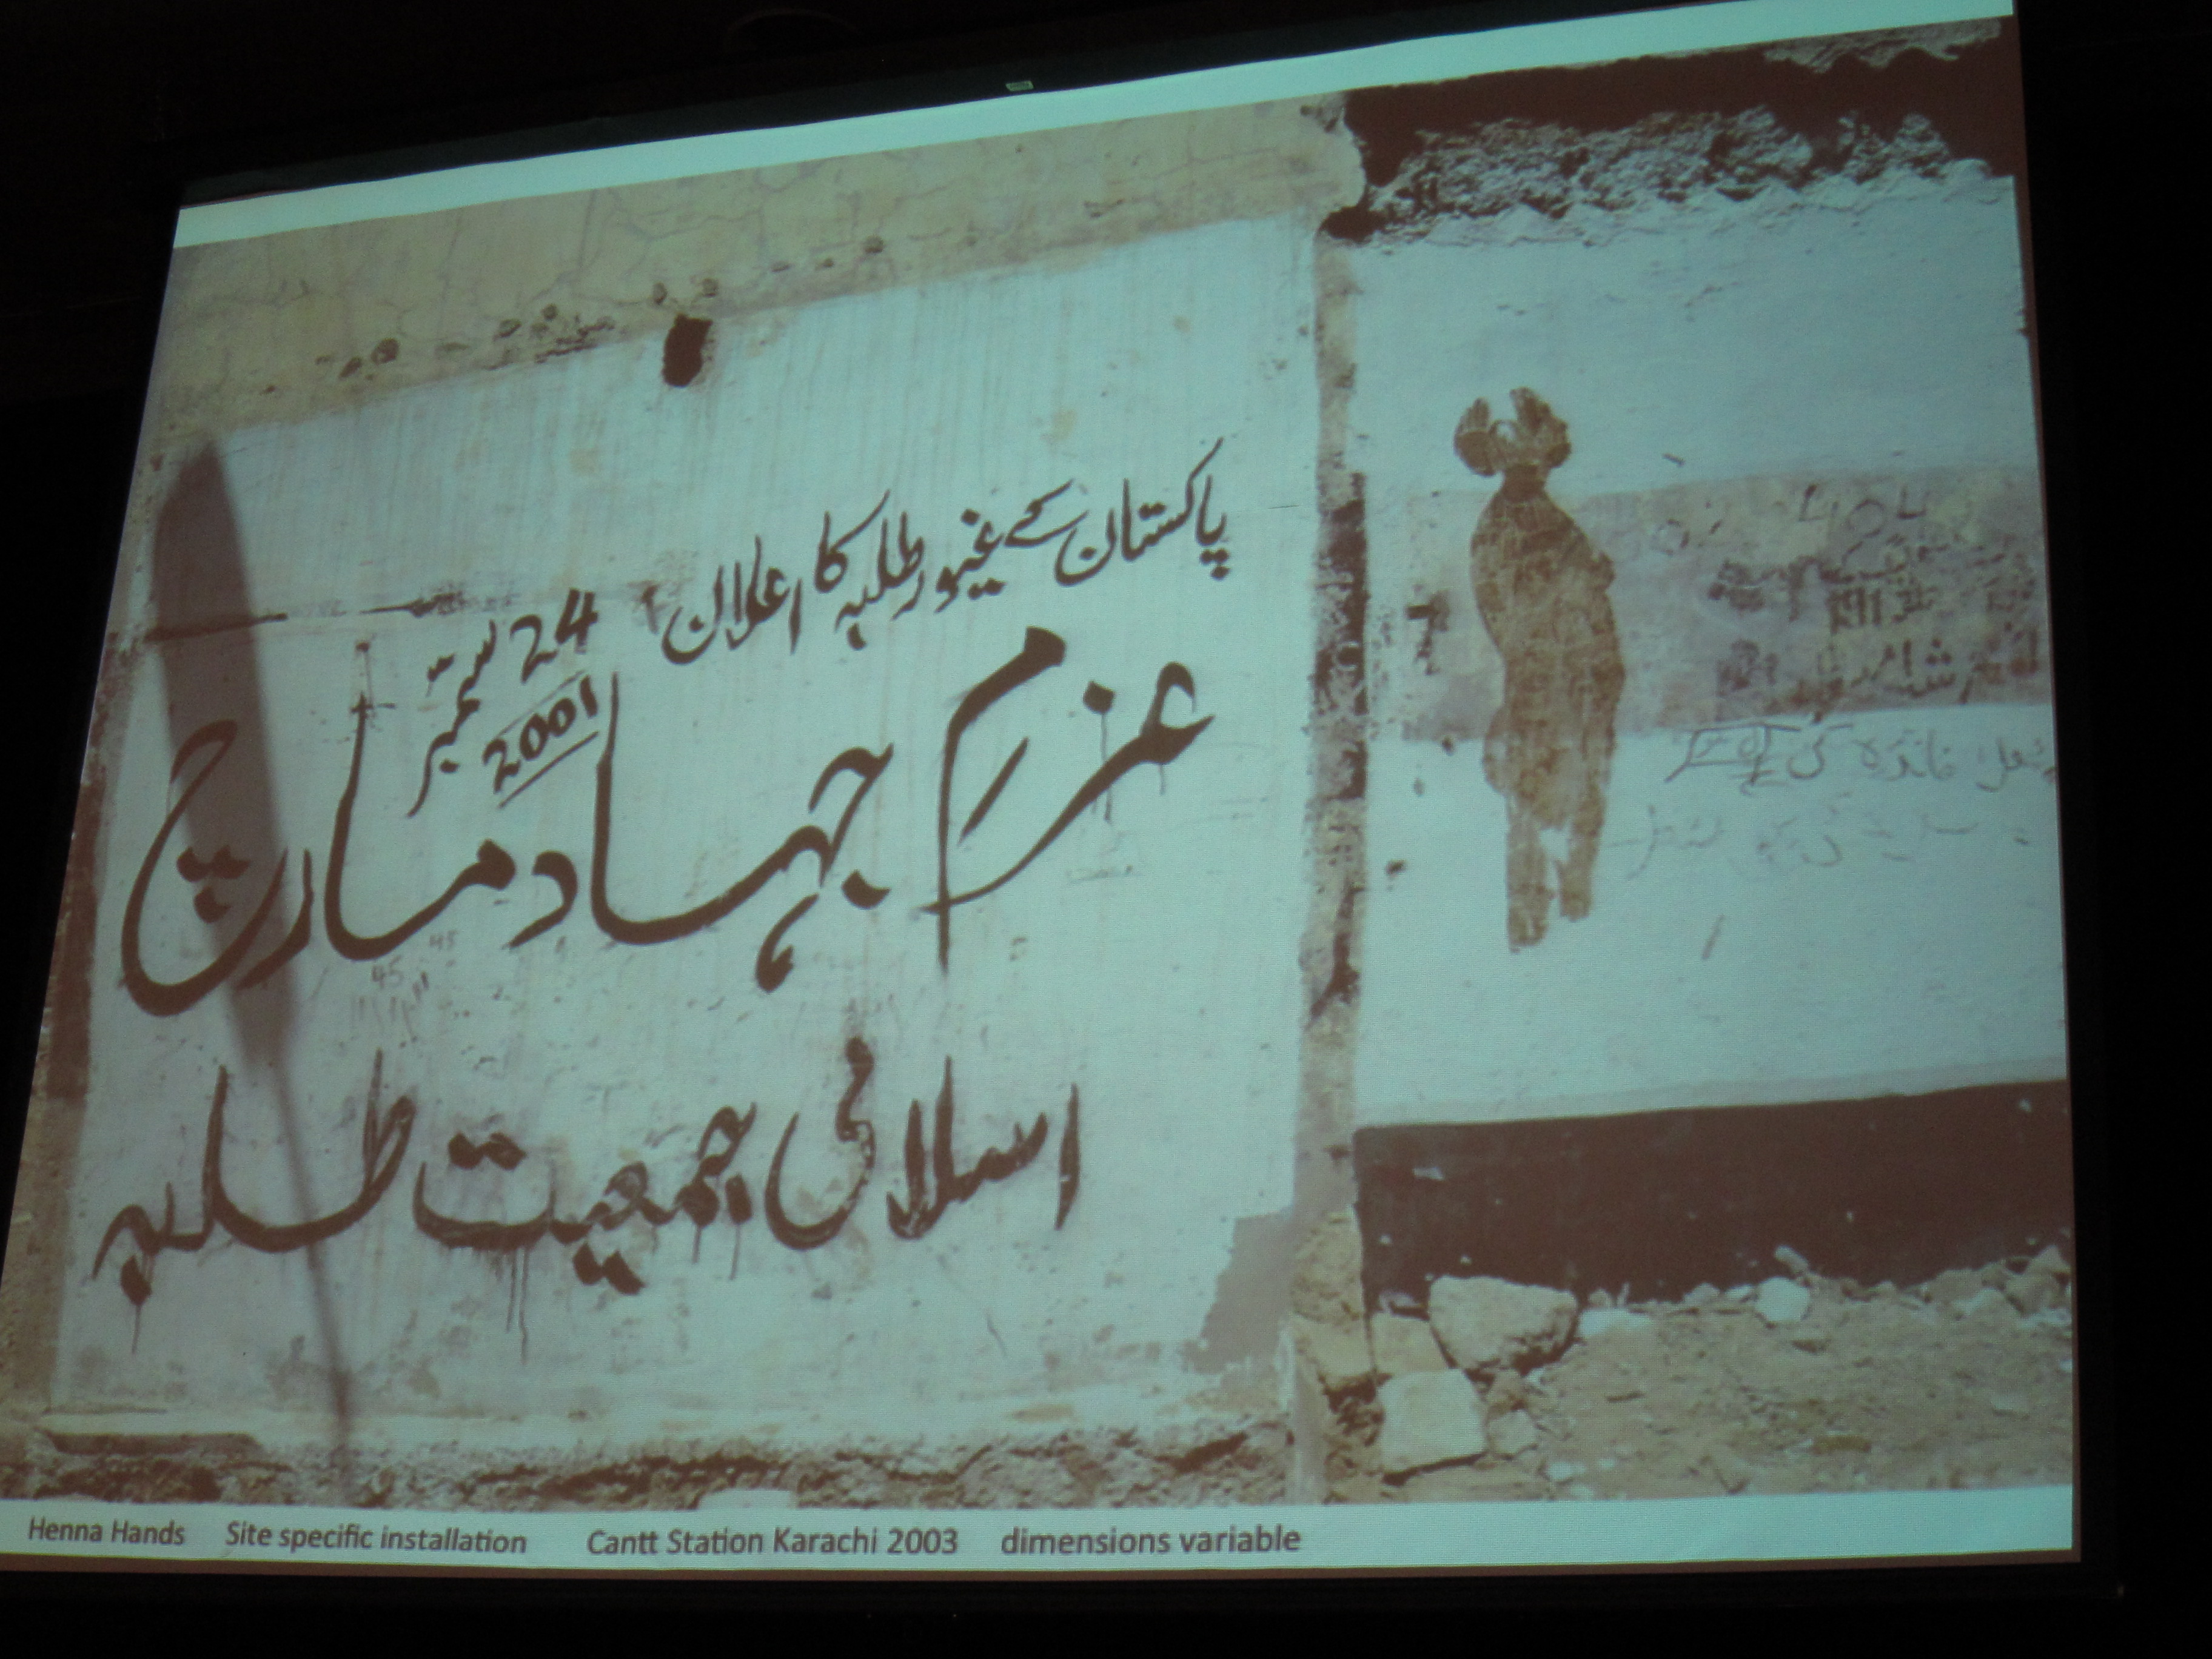 پاکستان کے غیور طلبہ کا اعلان
24 ستمبر
2001
عزم جہاد مارچ
اسلامی جمعیت طلبہ
Henna Hands Site specific installation Cantt Station Karachi 2003 dimensions variable